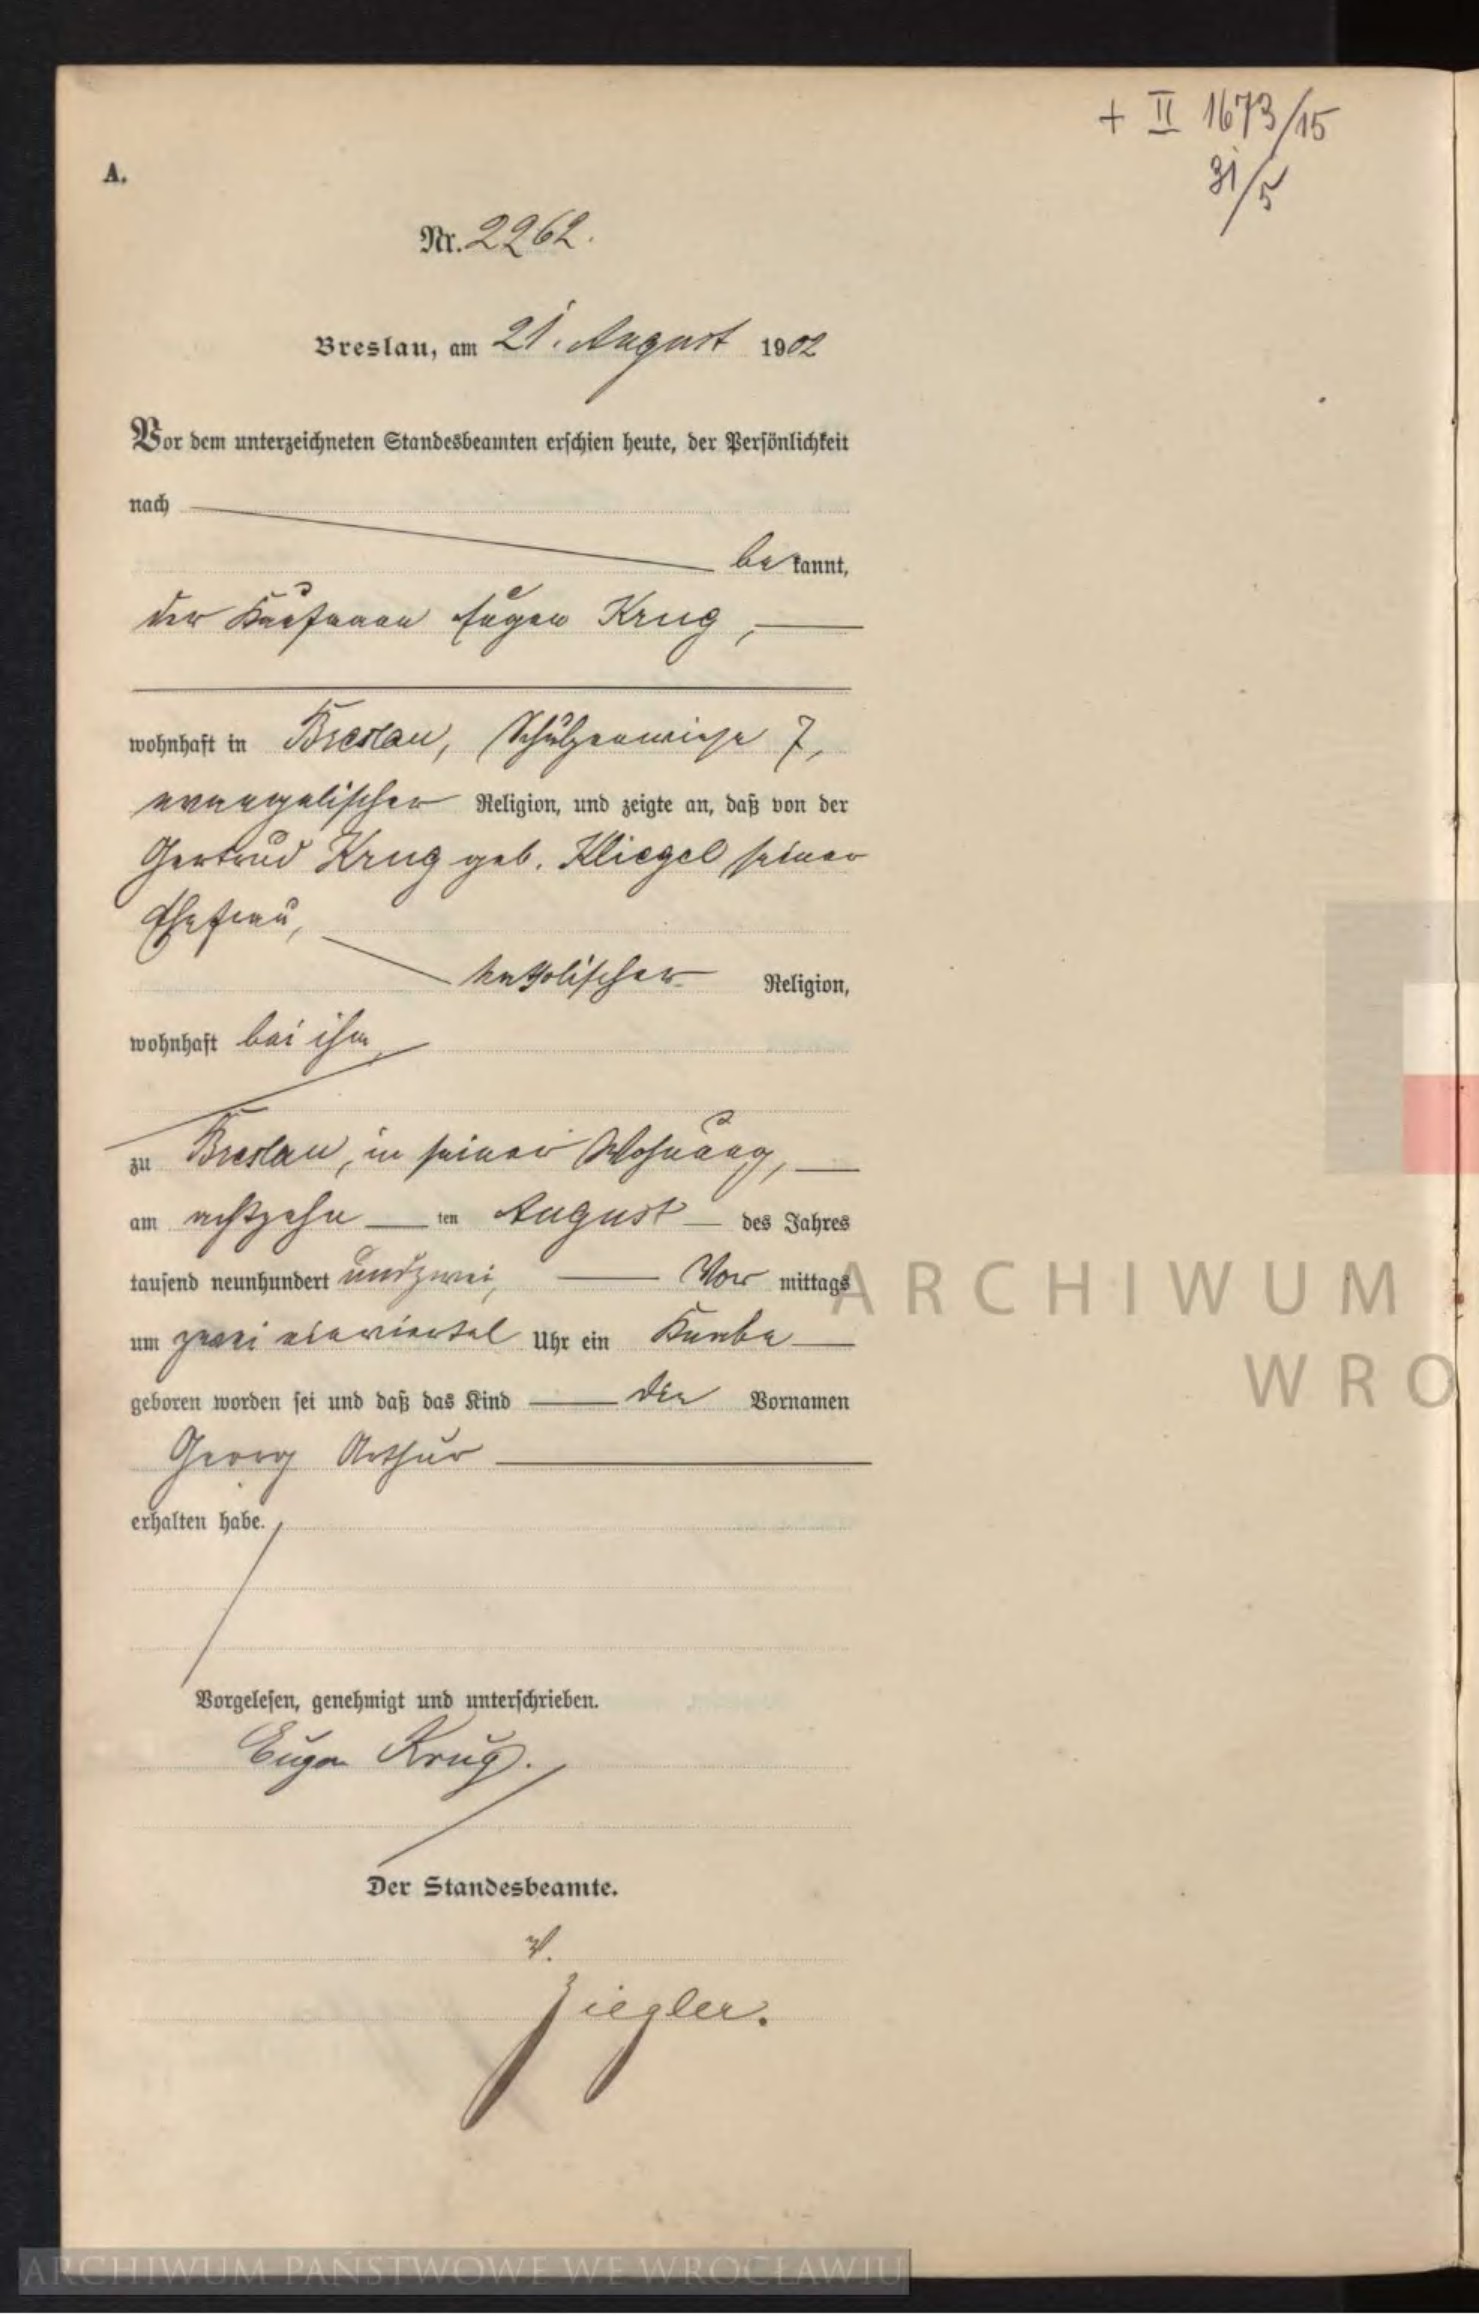 + II 1673/15
31/5
A.
Nr. 2262.
Breslau, am 21. August 1902
Vor dem unterzeichneten Standesbeamten erschien heute, der Persönlichkeit
nach
bekannt,
der Kaufmann Eugen Krug,
wohnhaft in Breslau, Schulzenwiese 7,
evangelischer Religion, und zeigte an, daß von der
Gertrud Krug geb. Kliegel seiner
Ehefrau,
katholischer Religion,
wohnhaft bei ihm,
zu Breslau, in seiner Wohnung,
am achtzehn ten August des Jahres
tausend neunhundert und zwei, Vor mittags
um zwei einviertel Uhr ein Knabe
geboren worden sei und daß das Kind die Vornamen
Georg Arthur
erhalten habe.
Vorgelesen, genehmigt und unterschrieben.
Eugen Krug.
Der Standesbeamte.
Ziegler.
ARCHIWUM
WRO
ARCHIWUM PAŃSTWOWE WE WROCŁAWIU